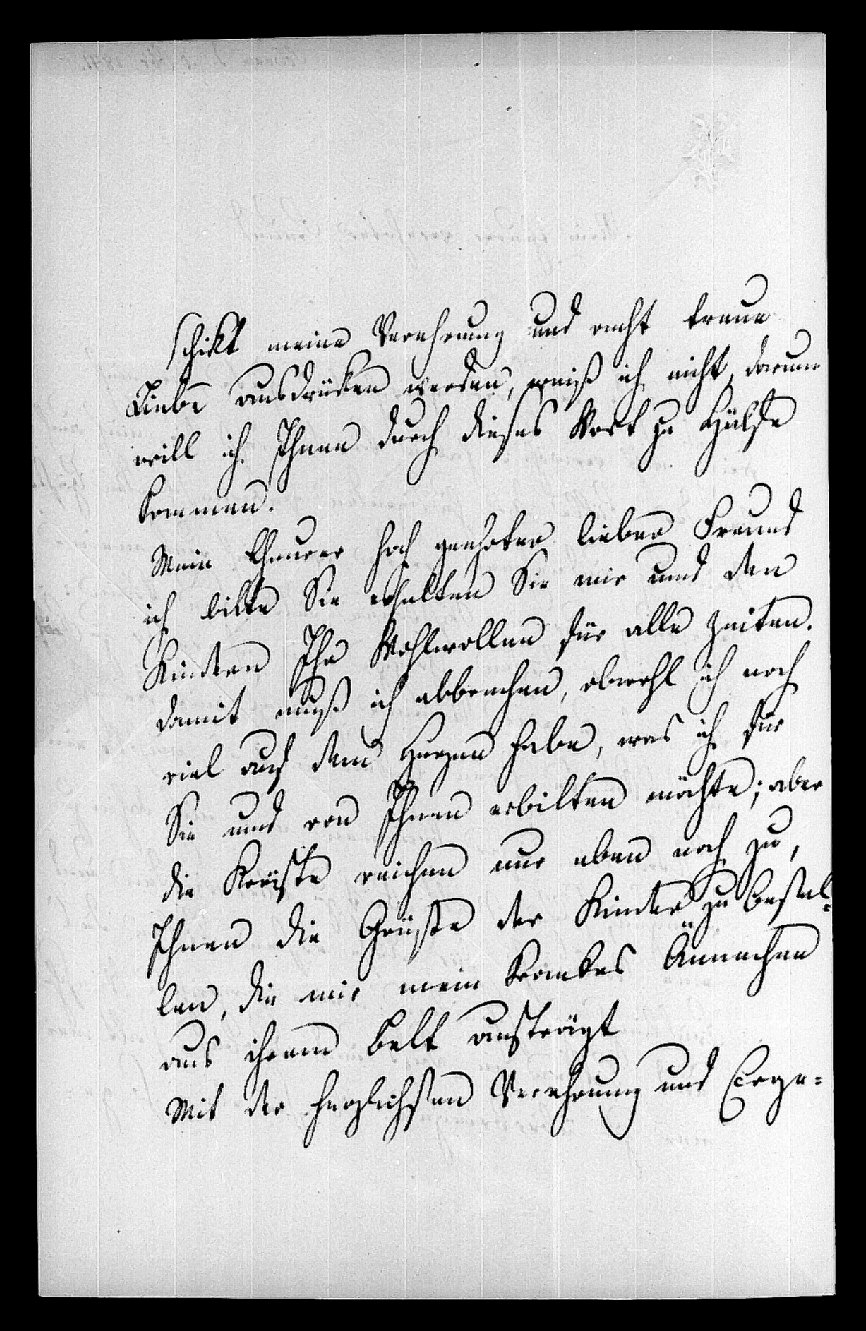 schikt meine Verehrung und recht treue
Liebe ausdrüken werden, weiß ich nicht, darum
will ich Ihnen durch dieses Wort zu Hülfe
kommen.
Mein theurer hoch geehrter lieber Freund
ich bitte Sie erhalten Sie mir und den
Kindern Ihr Wohlwollen für alle Zeiten.
damit muß ich abbrechen, obwohl ich noch
viel auf dem Herzen habe, was ich für
Sie und von Ihnen erbitten möchte; aber
die Kräfte reichen nur eben noch zu,
Ihnen die Grüße der Kinder zu bestel-
len, die mir mein krankes Ännchen
aus ihrem Bett aufträgt
Mit der herzlichsten Verehrung und Erge-